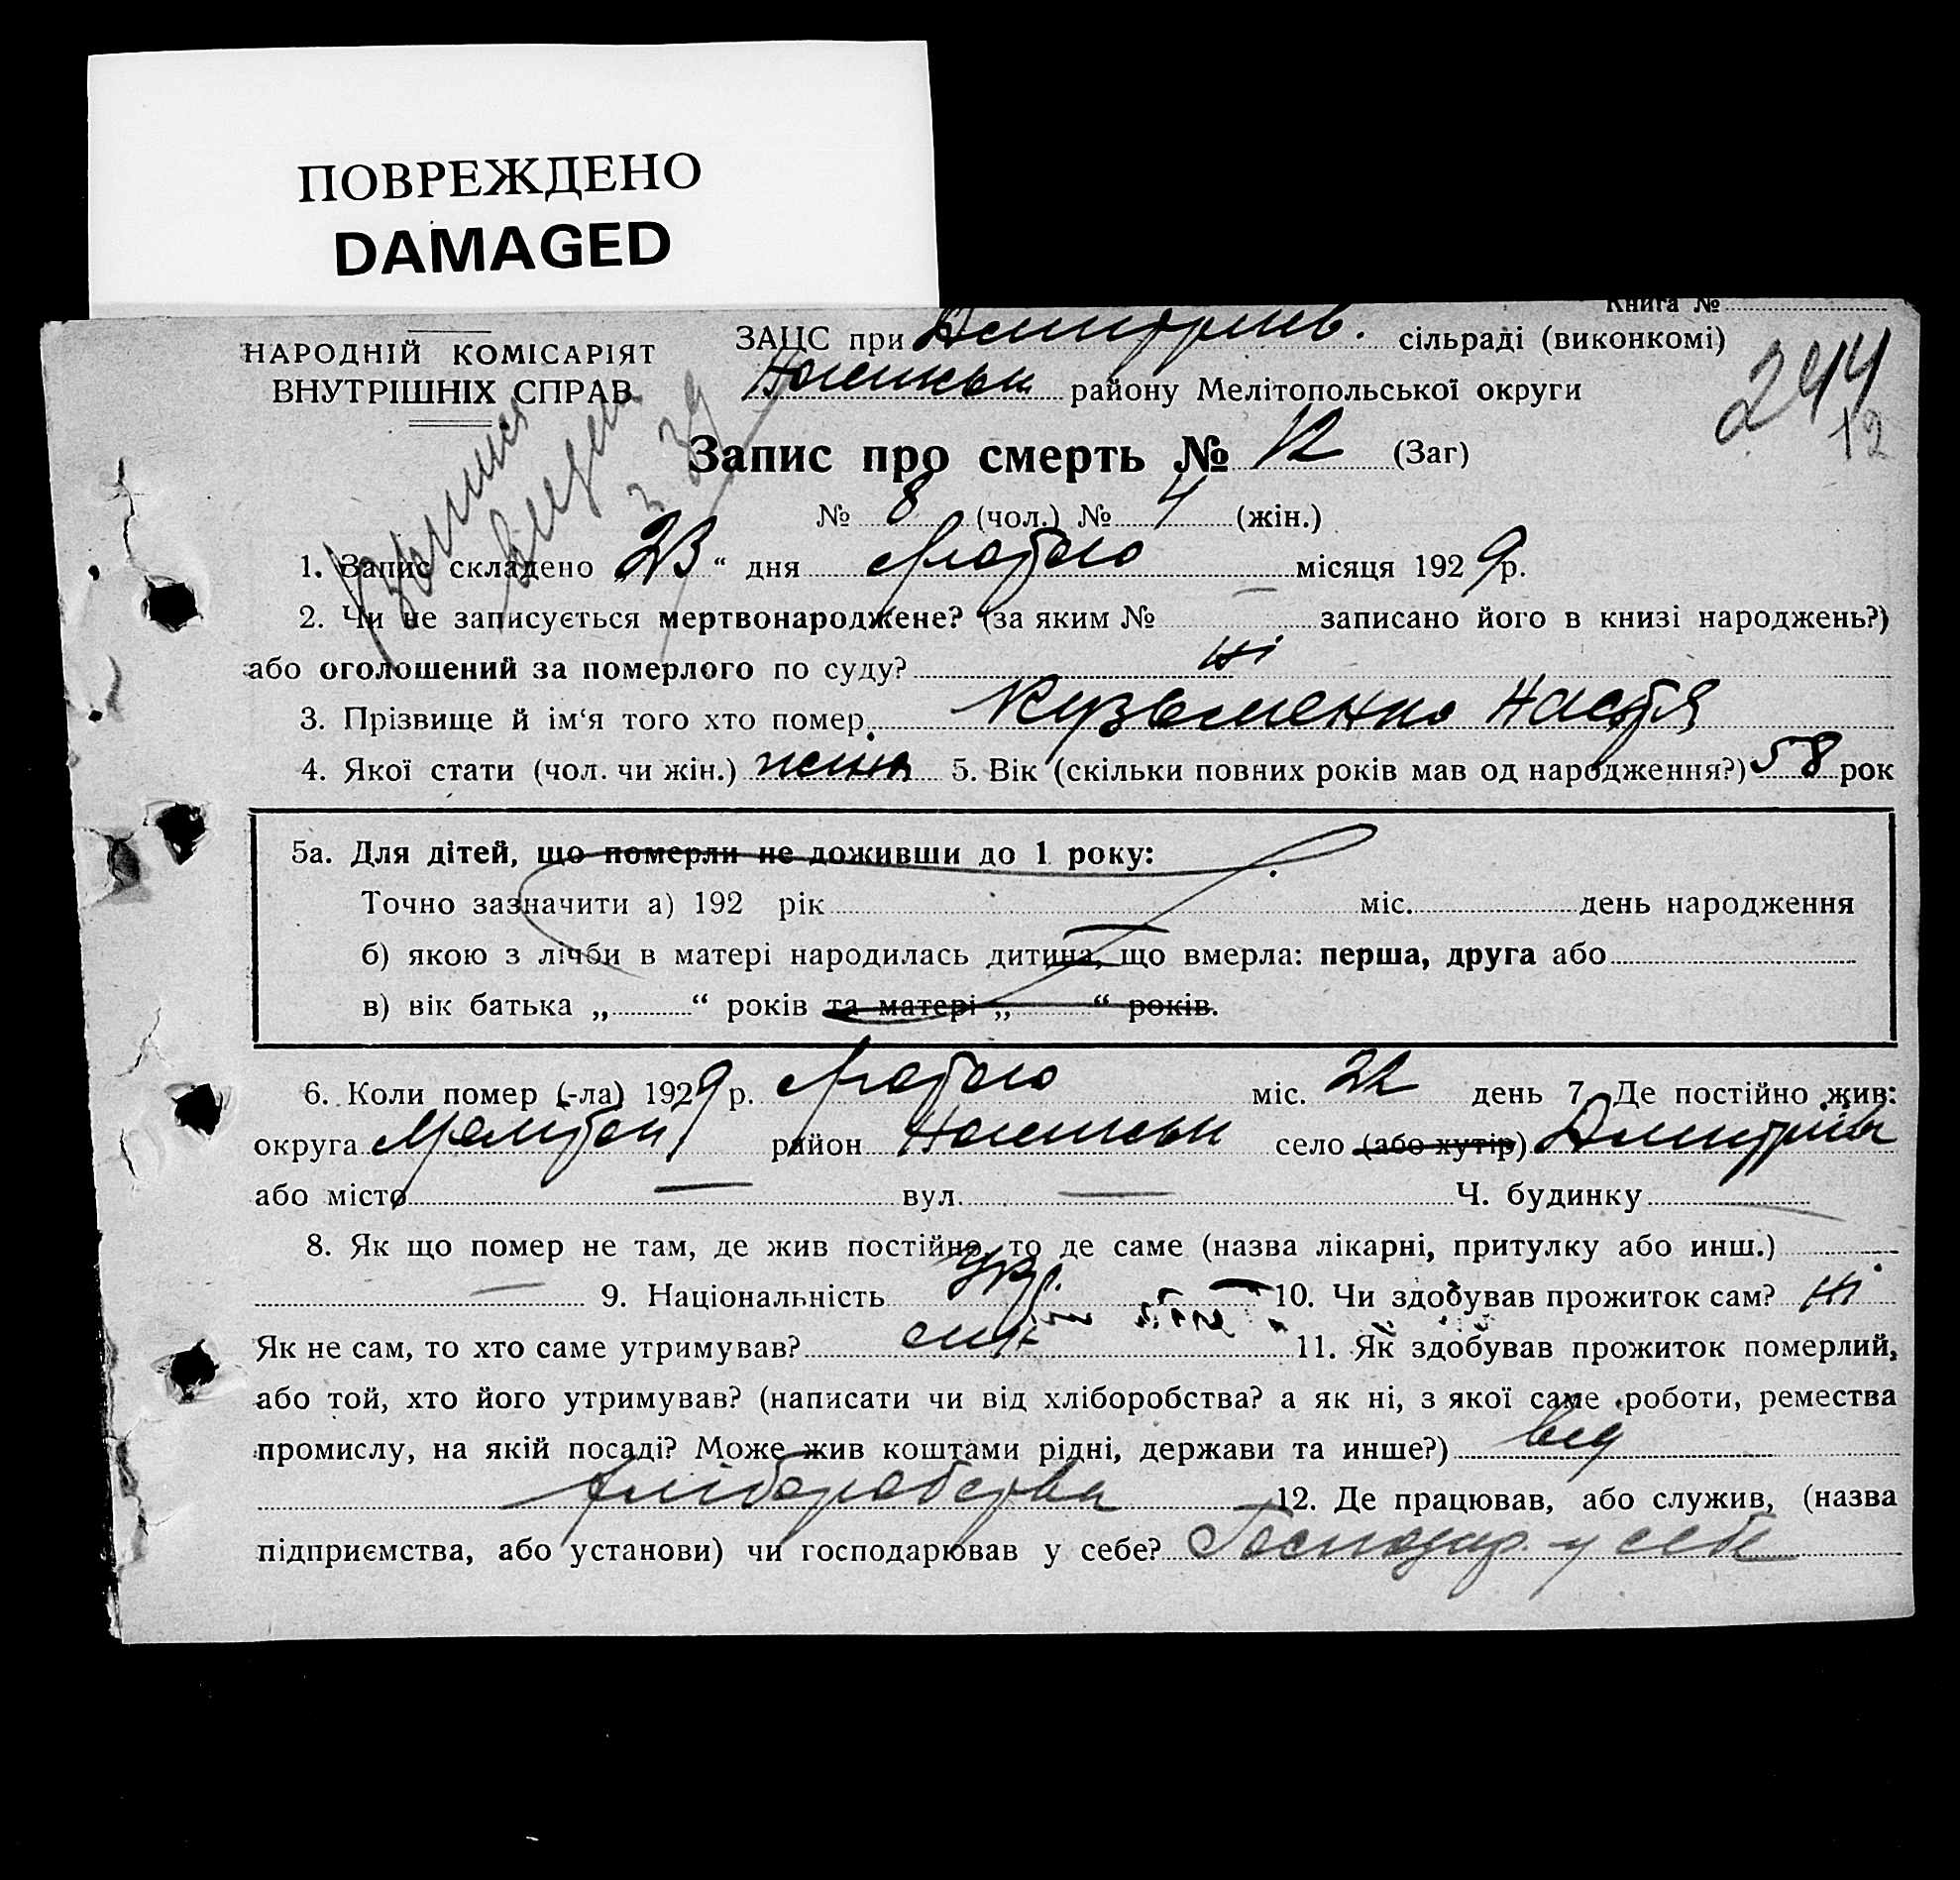 ПОВРЕЖДЕНО
DAMAGED
Книга №
НАРОДНІЙ КОМІСАРІЯТ
ВНУТРІШНІХ СПРАВ
ЗАЦС при Дмитрів. сільраді (виконкомі)
району Мелітопольської округи
244
12
Запис про смерть № 12 (Заг)
№ 8 (чол.) № 4 (жін.)
1. Запис складено „23“ дня Лютого місяця 1929 р.
2. Чи не записується мертвонароджене? (за яким № — записано його в книзі народжень?)
або оголошений за померлого по суду? ні
3. Прізвище й ім‘я того хто помер Кузьменко Настя
4. Якої стати (чол. чи жін.) жіна 5. Вік (скільки повних років мав од народження?) 58 рок
5а. Для дітей, що померли не доживши до 1 року:
Точно зазначити а) 192 рік міс. день народження
б) якою з лічби в матері народилась дитина, що вмерла: перша, друга або
в) вік батька „ “ років та матері „ “ років.
6. Коли помер (-ла) 1929 р. Лютого міс. 22 день 7. Де постійно жив:
округа район село (або хутір) Дмитрів
або місто — вул. — Ч. будинку
8. Як що помер не там, де жив постійно, то де саме (назва лікарні, притулку або инш.)
— 9. Національність Укр. 10. Чи здобував прожиток сам? ні
Як не сам, то хто саме утримував? син 11. Як здобував прожиток померлий,
або той, хто його утримував? (написати чи від хліборобства? а як ні, з якої саме роботи, ремества
промислу, на якій посаді? Може жив коштами рідні, держави та инше?) від
хліборобства 12. Де працював, або служив, (назва
підприємства, або установи) чи господарював у себе? Господар. у себе